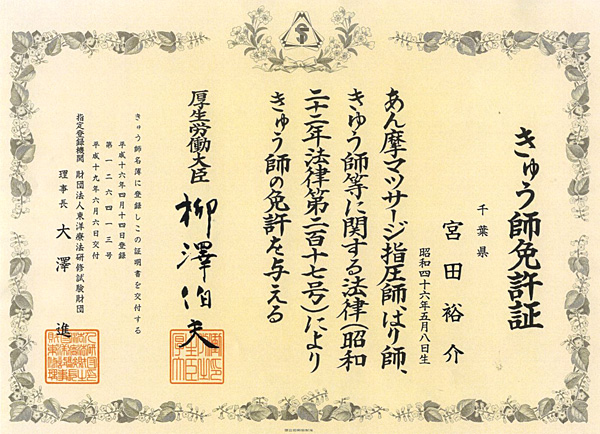 きゅう師免許証
千葉県
宮田裕介
昭和四十六年五月八日生
あん摩マッサージ指圧師、はり師、
きゆう師等に関する法律(昭和
二十二年法律第二百十七号)により
きゅう師の免許を与える
厚生労働大臣 柳澤伯夫
きゅう師名簿に登録しこの証明書を交付する
平成十六年四月十四日登録
第一二六四一三号
平成十九年六月六日交付
指定登録機関 財団法人東洋療法研修試験財団
理事長 大澤進